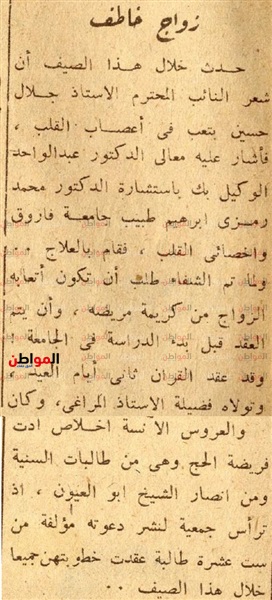 زواج خاطف
حدث خلال هذا الصيف أن
شعر النائب المحترم الاستاذ جلال
حسين بتعب فى أعصاب القلب ،
فأشار عليه معالى الدكتور عبدالواحد
الوكيل بك باستشارة الدكتور محمد
رمزى ابرهيم طبيب جامعة فاروق
واخصائى القلب ، فقام بالعلاج ..
ولما تم الشفاء طلب أن تكون أتعابه
الزواج من كريمة مريضه ، وأن يتم
العقد قبل بدء الدراسة فى الجامعة !
المواطن
وقد عقد القران ثانى أيام العيد ،
وتولاه فضيلة الاستاذ المراغى ، وكان
والعروس الآنسة اخلاص ادت
فريضة الحج وهى من طالبات السنية
ومن انصار الشيخ ابو العيون ، اذ
ترأس جمعية لنشر دعوته مؤلفة من
ست عشرة طالبة عقدت خطوبتهن جميعا
خلال هذا الصيف ..